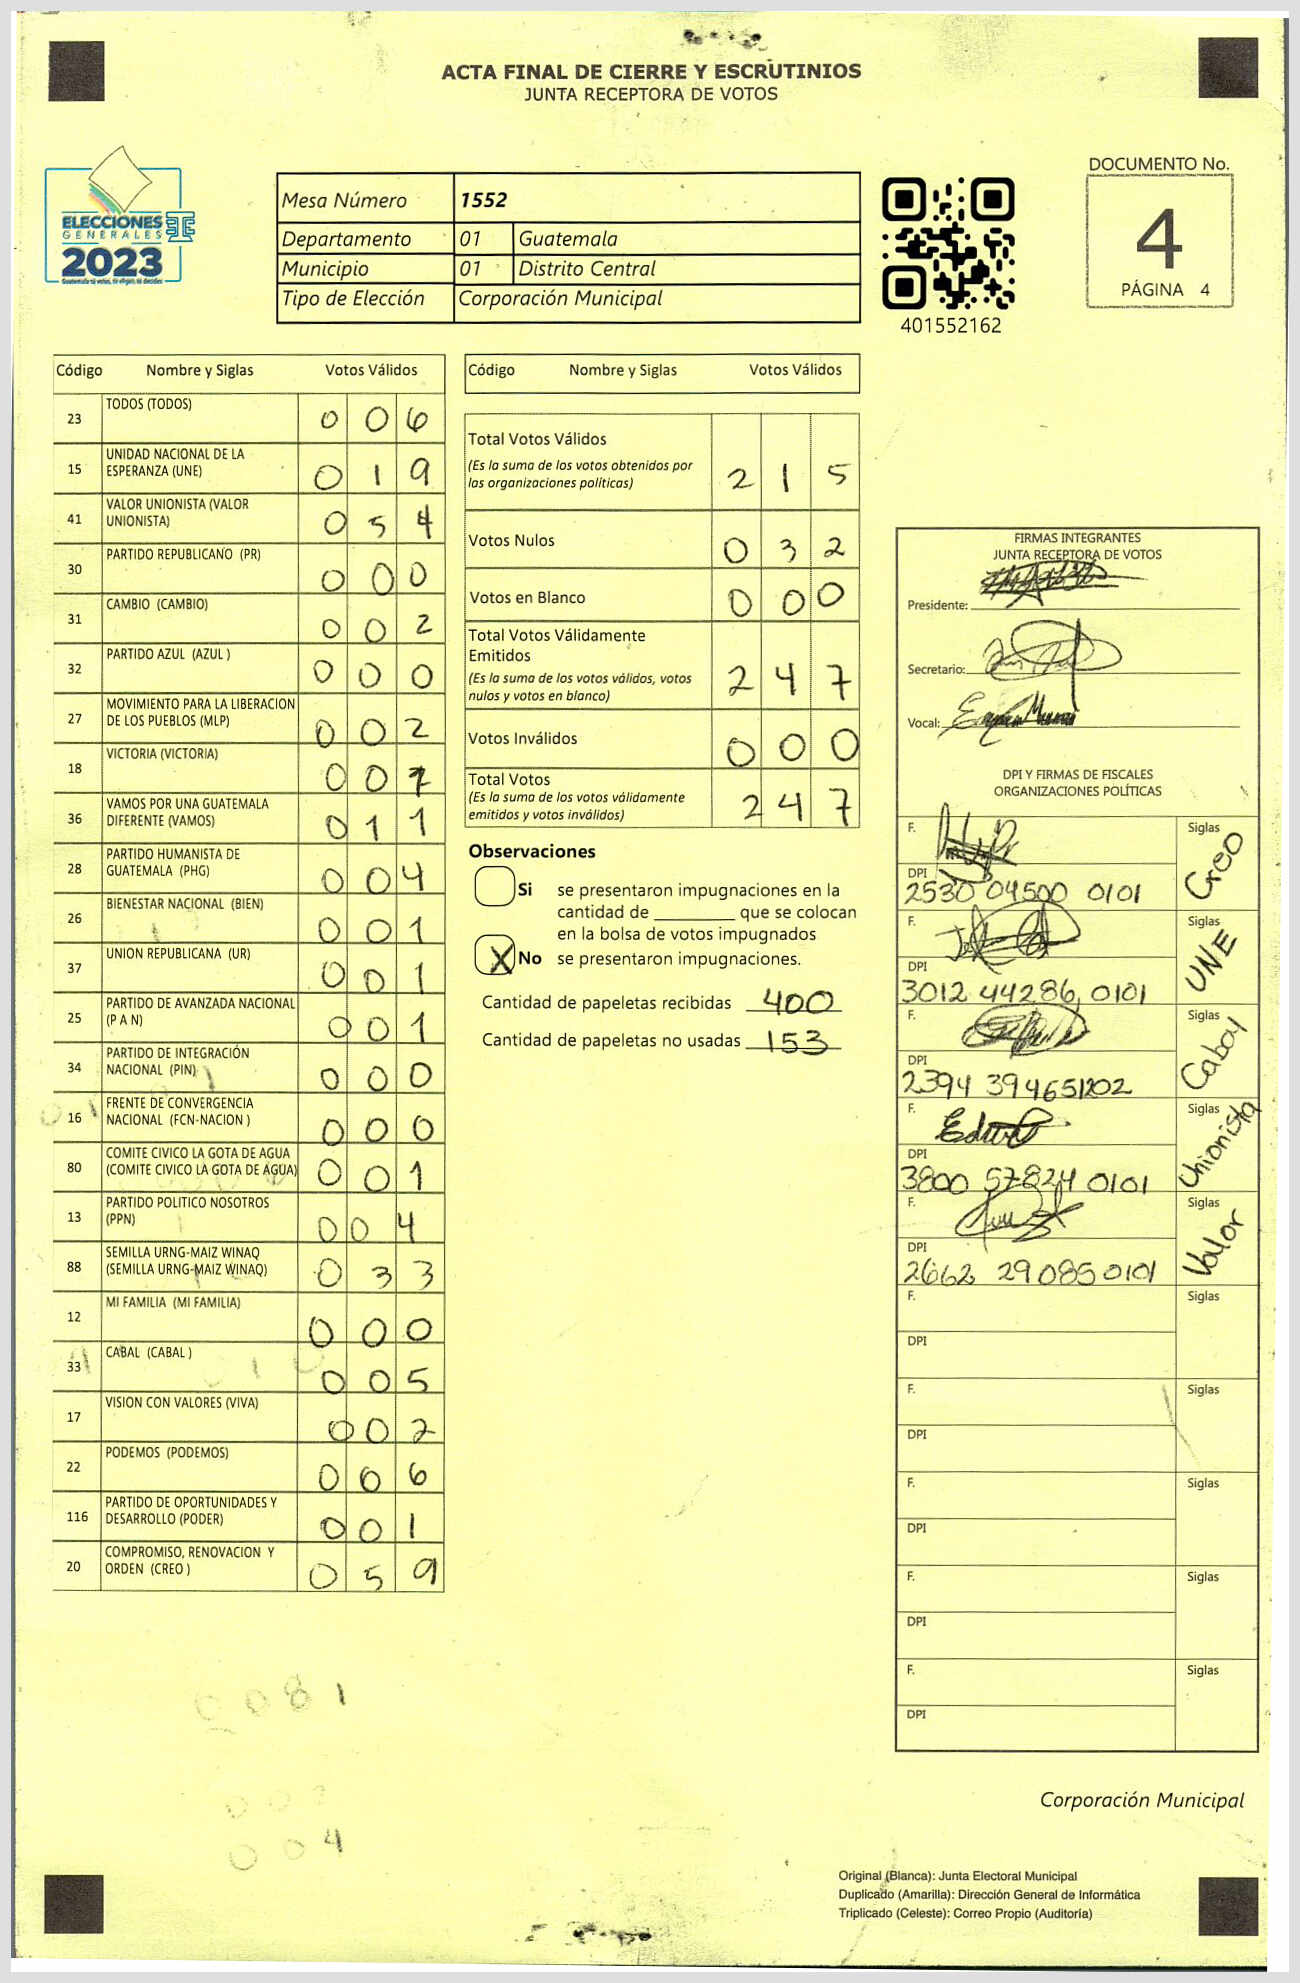 ACTA FINAL DE CIERRE Y ESCRUTINIOS
JUNTA RECEPTORA DE VOTOS
ELECCIONES
GENERALES
2023
Mesa Número 1552
Departamento 01 Guatemala
Municipio 01 Distrito Central
Tipo de Elección Corporación Municipal
401552162
DOCUMENTO No.
4
PÁGINA 4
Código Nombre y Siglas Votos Válidos
23 TODOS (TODOS) 0 0 6
15 UNIDAD NACIONAL DE LA
ESPERANZA (UNE) 0 1 9
41 VALOR UNIONISTA (VALOR
UNIONISTA) 0 5 4
30 PARTIDO REPUBLICANO (PR) 0 0 0
31 CAMBIO (CAMBIO) 0 0 2
32 PARTIDO AZUL (AZUL ) 0 0 0
27 MOVIMIENTO PARA LA LIBERACION
DE LOS PUEBLOS (MLP) 0 0 2
18 VICTORIA (VICTORIA) 0 0 7
36 VAMOS POR UNA GUATEMALA
DIFERENTE (VAMOS) 0 1 1
28 PARTIDO HUMANISTA DE
GUATEMALA (PHG) 0 0 4
26 BIENESTAR NACIONAL (BIEN) 0 0 1
37 UNION REPUBLICANA (UR) 0 0 1
25 PARTIDO DE AVANZADA NACIONAL
(P A N) 0 0 1
34 PARTIDO DE INTEGRACIÓN
NACIONAL (PIN) 0 0 0
16 FRENTE DE CONVERGENCIA
NACIONAL (FCN-NACION ) 0 0 0
80 COMITE CIVICO LA GOTA DE AGUA
(COMITE CIVICO LA GOTA DE AGUA) 0 0 1
13 PARTIDO POLITICO NOSOTROS
(PPN) 0 0 4
88 SEMILLA URNG-MAIZ WINAQ
(SEMILLA URNG-MAIZ WINAQ) 0 3 3
12 MI FAMILIA (MI FAMILIA) 0 0 0
33 CABAL (CABAL ) 0 0 5
17 VISION CON VALORES (VIVA) 0 0 2
22 PODEMOS (PODEMOS) 0 0 6
116 PARTIDO DE OPORTUNIDADES Y
DESARROLLO (PODER) 0 0 1
20 COMPROMISO, RENOVACION Y
ORDEN (CREO ) 0 5 9
0 0 8 1
0 0 4
Código Nombre y Siglas Votos Válidos
Total Votos Válidos
(Es la suma de los votos obtenidos por
las organizaciones políticas) 2 1 5
Votos Nulos 0 3 2
Votos en Blanco 0 0 0
Total Votos Válidamente
Emitidos
(Es la suma de los votos válidos, votos
nulos y votos en blanco) 2 4 7
Votos Inválidos 0 0 0
Total Votos
(Es la suma de los votos válidamente
emitidos y votos inválidos) 2 4 7
Observaciones
Si se presentaron impugnaciones en la
cantidad de ________ que se colocan
en la bolsa de votos impugnados
X No se presentaron impugnaciones.
Cantidad de papeletas recibidas 400
Cantidad de papeletas no usadas 153
FIRMAS INTEGRANTES
JUNTA RECEPTORA DE VOTOS
Presidente:
Secretario:
Vocal:
DPI Y FIRMAS DE FISCALES
ORGANIZACIONES POLÍTICAS
F. Siglas Creo
DPI 2530 04500 0101
F. Siglas UNE
DPI 3012 44286 0101
F. Siglas Cabal
DPI 2394 394651202
F. Siglas Unionista
DPI 3800 57824 0101
F. Siglas Valor
DPI 2662 29085 0101
F. Siglas
DPI
F. Siglas
DPI
F. Siglas
DPI
F. Siglas
DPI
F. Siglas
DPI
Corporación Municipal
Original (Blanca): Junta Electoral Municipal
Duplicado (Amarilla): Dirección General de Informática
Triplicado (Celeste): Correo Propio (Auditoría)